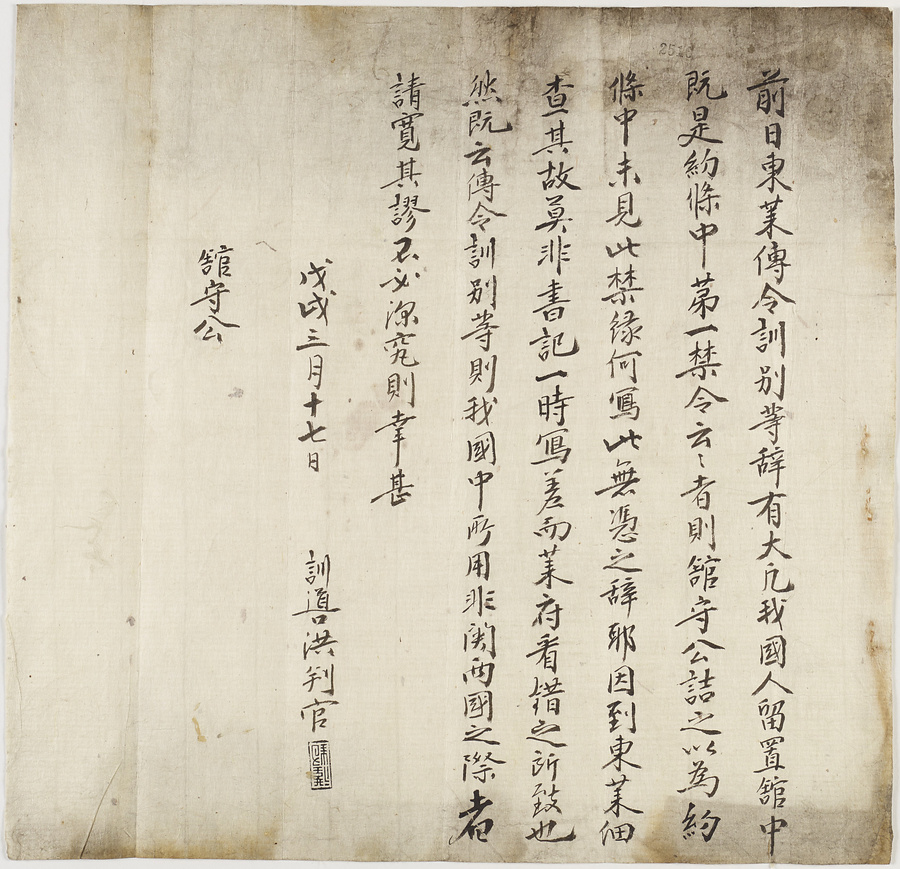 前日東萊傳令訓別等辞有大凡我國人留置舘中
既是約條中苐一禁令云〻者則舘守公詰之以為約
條中未見此禁縁何寫此無憑之辞耶因到東萊細
查其故莫非書記一時寫差而萊府看錯之所致也
然既云傳令訓別等則我國中所用非関两國之際者
請寛其謬不必深究則幸甚
戊戌三月十七日 訓導洪判官
舘守公
251